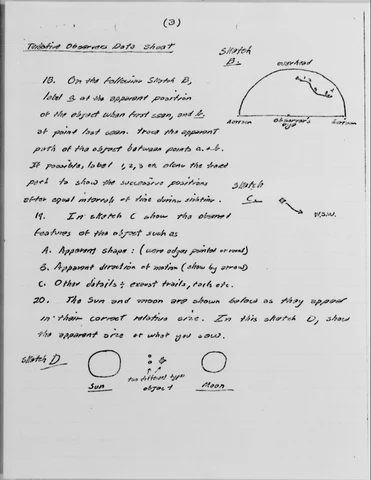 (3)
Tentative Observers Data Sheet
Sketch
B.
overhead
18. On the following sketch B,
label a at the apparent position
of the object when first seen, and b.
at point last seen. Trace the apparent
path of the object between points a. & b.
Horizon
Observer's
eye
Horizon
If possible, label 1, 2, 3 etc along the traced
path to show the successive positions
after equal intervals of time during sighting.
Sketch
C.
W.S.W.
19. In sketch C show the observed
features of the object such as
A. Apparent shape: (were edges pointed or round)
B. Apparent direction of motion (show by arrow)
C. Other details: exhaust trails, torch etc.
20. The Sun and moon are shown below as they appear
in their correct relative size. In this sketch D, show
the apparent size of what you saw.
Sketch D
Sun
two different type
object
Moon